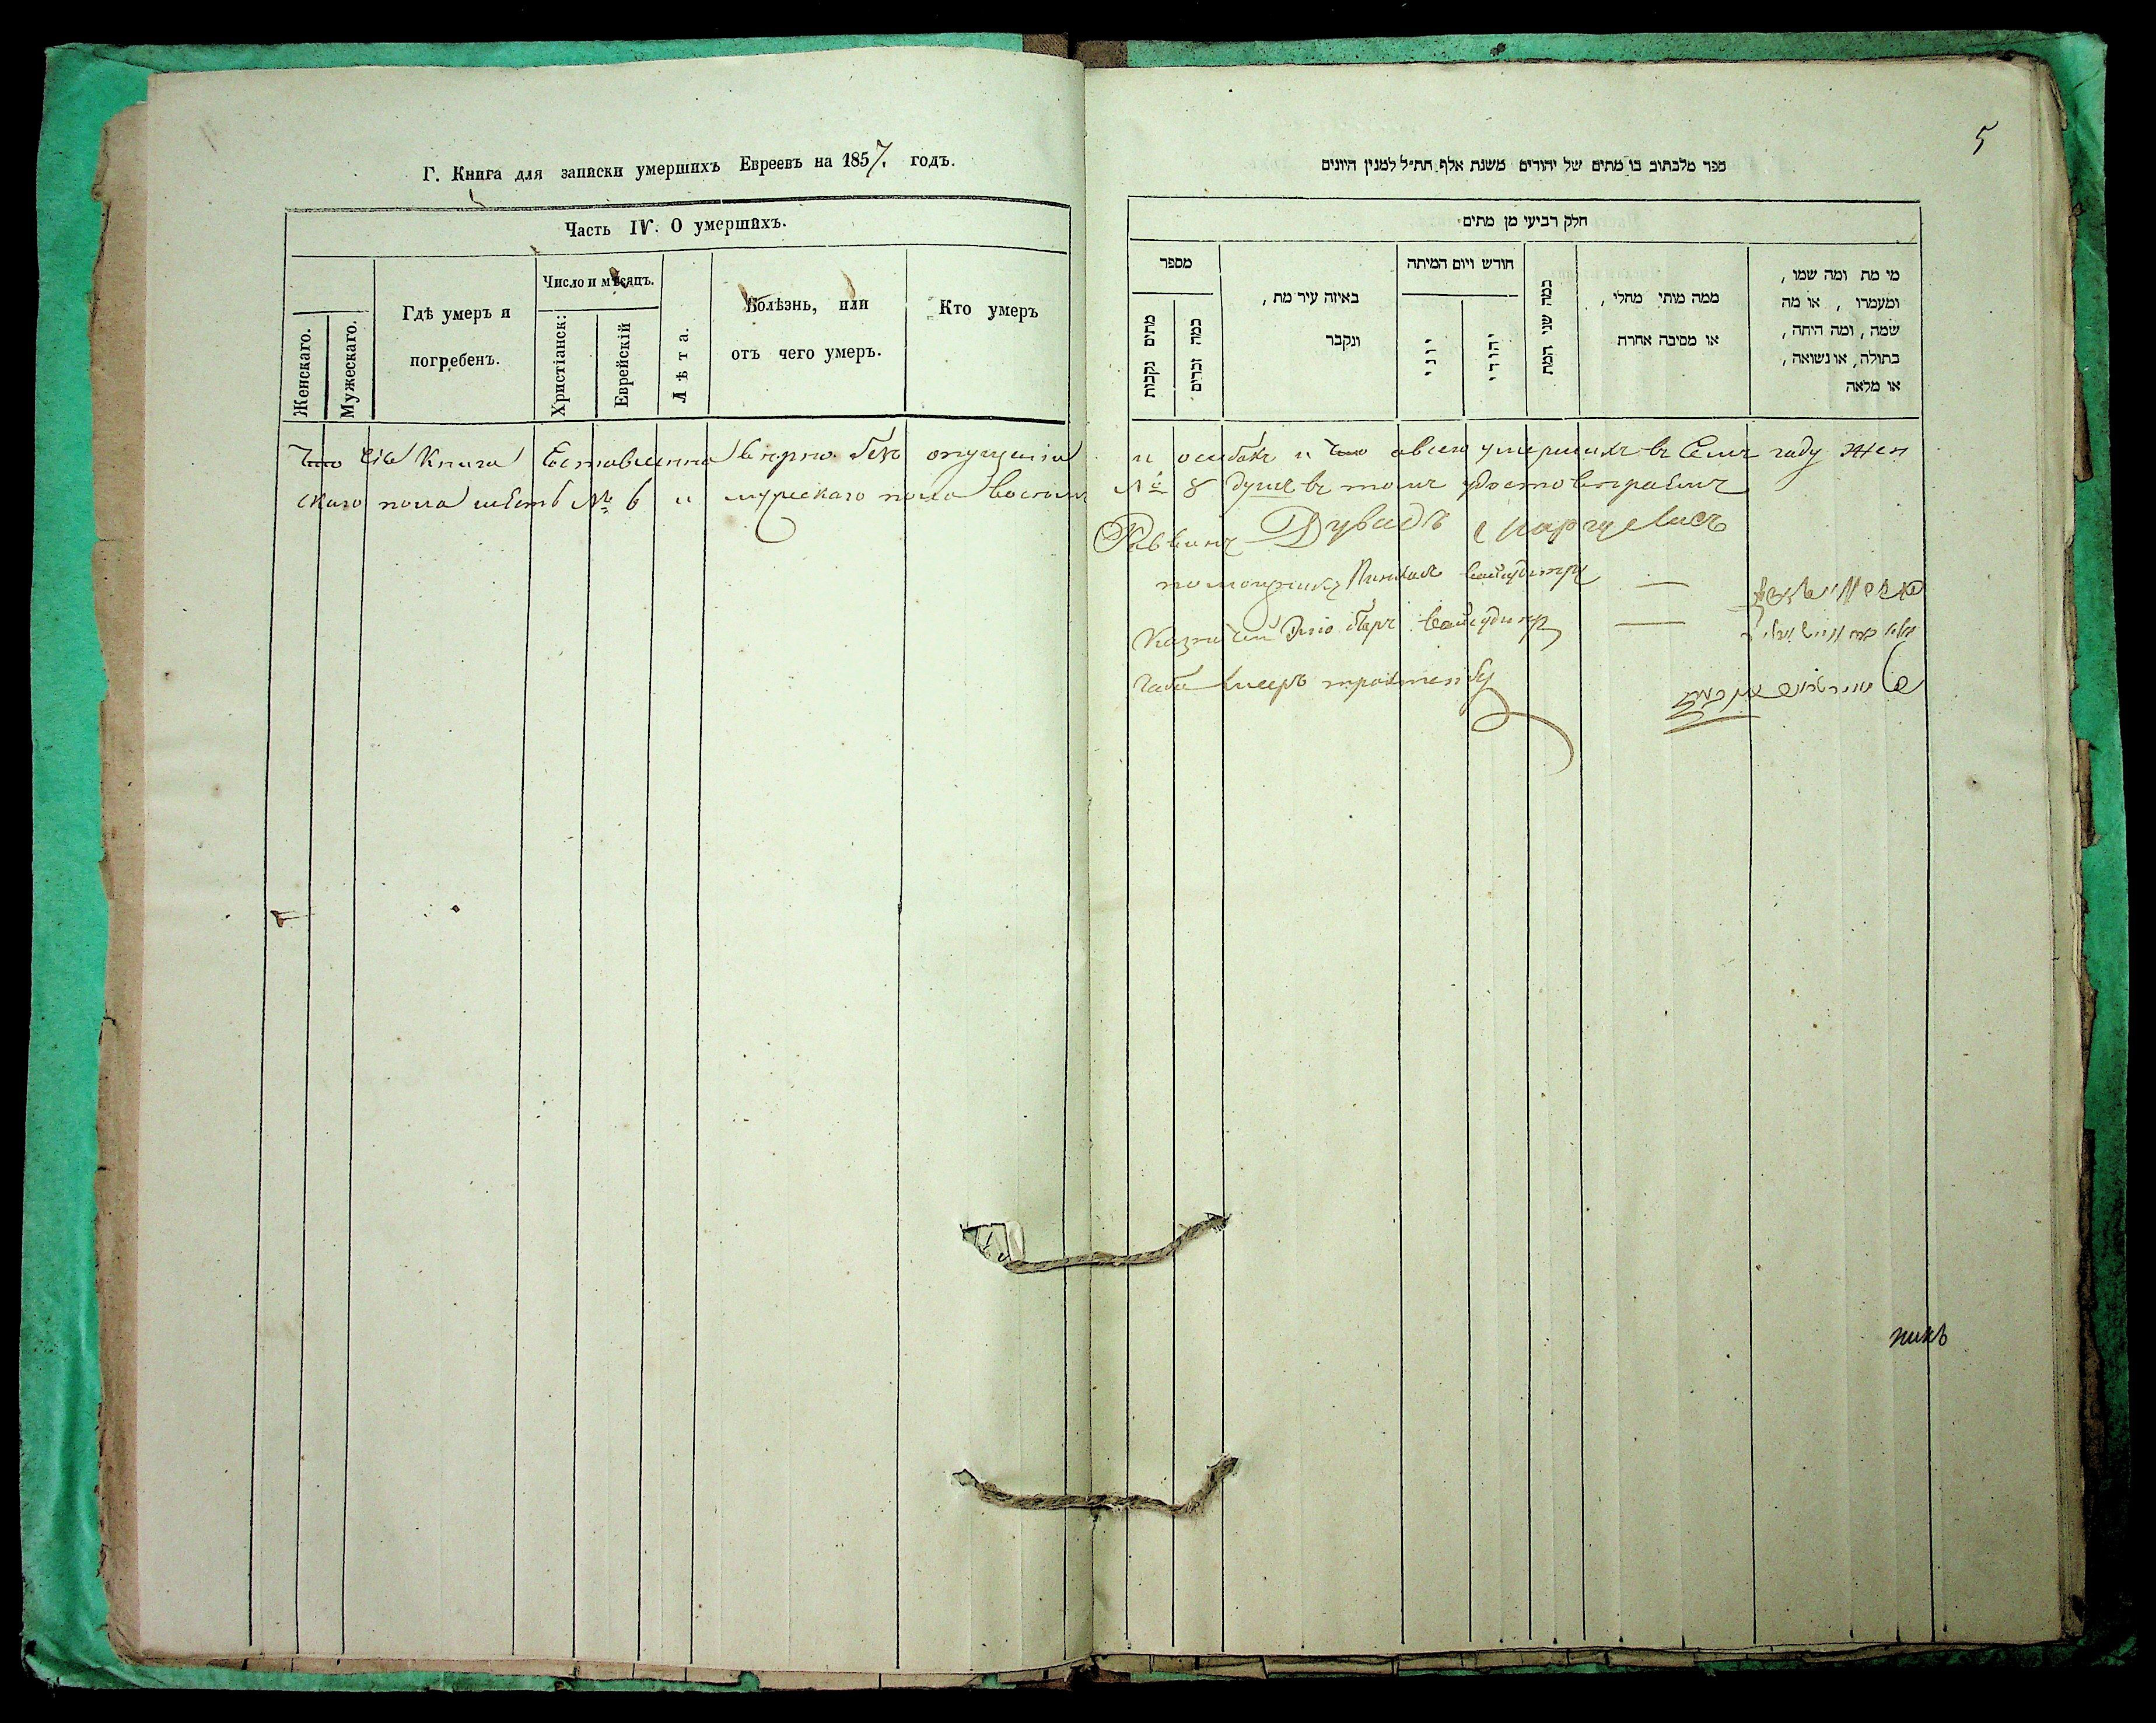 Г. Книга для записки умершихъ Евреевъ на 1857. годъ.
Часть IV. О умершихъ.
Женскаго.
Мужескаго.
Гдѣ умеръ и
погребенъ.
Число и мѣсяцъ.
Христіанск:
Еврейскій
Лѣта.
Болѣзнь, или
отъ чего умеръ.
Кто умеръ
Что Сія Книга Составленна вѣрно безъ опущенія
скаго пола шесть № 6 и мужескаго пола восемь
5
ספר מלכתוב בו מתים של יהודים משנת אלף תת״ל למנין היונים
חלק רביעי מן מתים
מספר
מתים נקבות
כמה זכרים
באיזה עיר מת,
ונקבר
חודש ויום המיתה
יוני
יהודי
כמה שני המת
ממה מותי מחלי,
או מסיבה אחרת
מי מת ומה שמו,
ומעמדו, או מה
שמה, ומה היתה,
בתולה, או נשואה,
או מלאה
и ошибокъ и что всего умершихъ въ Семъ году жен
№ 8 душъ въ томъ удостовѣраемъ
Раввинъ Дувидъ Маргулисъ
помощникъ Пинхасъ
Казначей
Габе
никъ